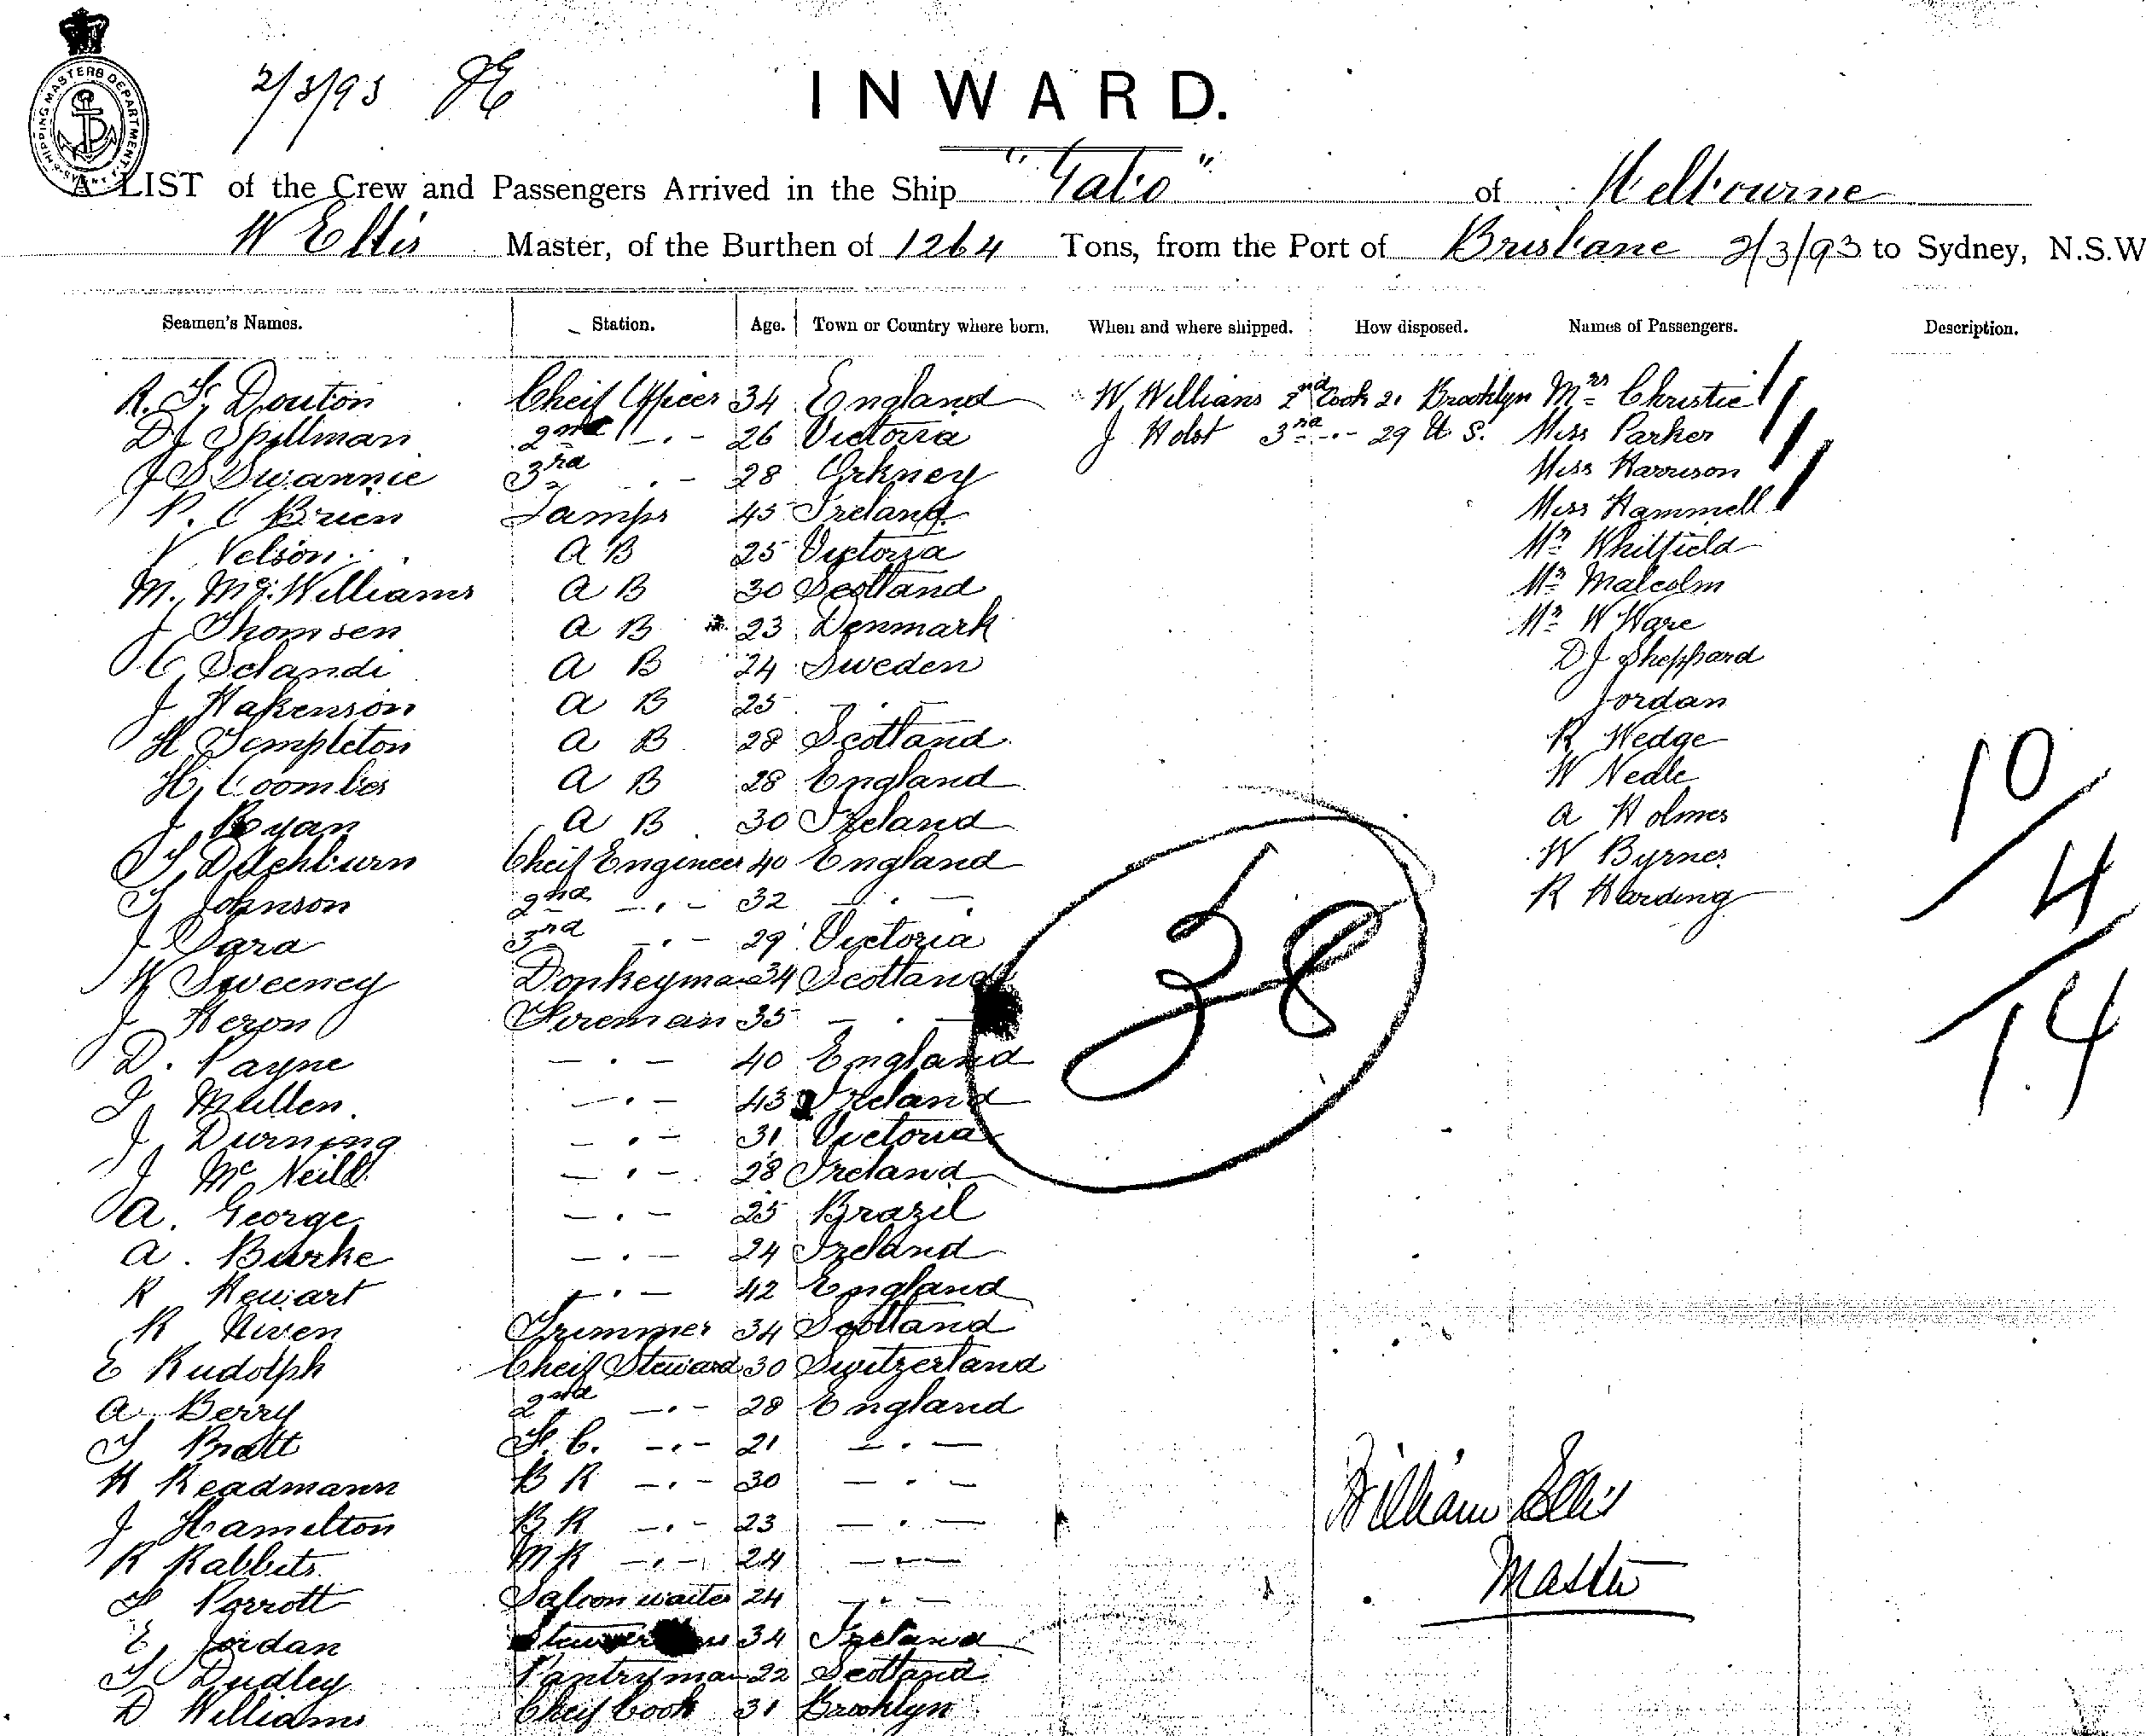 SHIPPING MASTERS DEPARTMENT
2/3/93 JE
INWARD.
A LIST of the Crew and Passengers Arrived in the Ship "Gabo" of Melbourne
W Ellis Master, of the Burthen of 1264 Tons, from the Port of Brisbane 2/3/93 to Sydney, N.S.W
Seamen's Names. Station. Age. Town or Country where born. When and where shipped. How disposed. Names of Passengers. Description.
R. F. Douton Cheif Officer 34 England W Willians 2nd Cook 21 Brooklyn Mrs Christie
D J Spillman 2nd —.— 26 Victoria J Holst 3rd -.- 29 U. S. Miss Parker
J S Swannie 3rd . - 28 Orkney Miss Harrison
P. O Brien Lamps 45 Ireland Miss Hammell
Nelson A B 25 Victoria Mr Whitfield
M. Mc Williams A B 30 Scotland Mr Malcolm
J Thomsen A B 23 Denmark Mr W Ware
C Selandi A B 24 Sweden D J Sheppard
J Hakenson A B 25 — . — Jordan
H Templeton A B 28 Scotland R Wedge
H Coombes A B 28 England W Neale
J Ryan A B 30 Ireland A Holmes
T Ditchburn Cheif Engineer 40 England W Byrnes
T Johnson 2nd —.— 32 — . — R Harding
J Sara 3rd —.— 29 Victoria
W Sweeney Donkeyman 34 Scotland
J Heron Fireman 35 — . —
D. Payne — . — 40 England
J Mullen. — . — 43 Ireland
J Durning — . — 31 Victoria
J Mc Neill — . — 28 Ireland
A. George — . — 25 Brazil
A. Burke — . — 24 Ireland
R Hewart — . — 42 England
R Niven Trimmer 34 Scotland
E Rudolph Cheif Steward 30 Switzerland
A Berry 2nd —.— 28 England
T Bratt F. C. —.— 21 — . —
H Readmann B R —.— 30 — . —
J Hamilton B R —.— 23 — . —
R Rabbits M R —.— 24 — . —
F Porrott Saloon waiter 24 — . —
E Jordan 34 Ireland
T Dudley Pantryman 22 Scotland
D Williams Cheif Cook 31 Brooklyn
38
10
4
14
William Ellis
Master